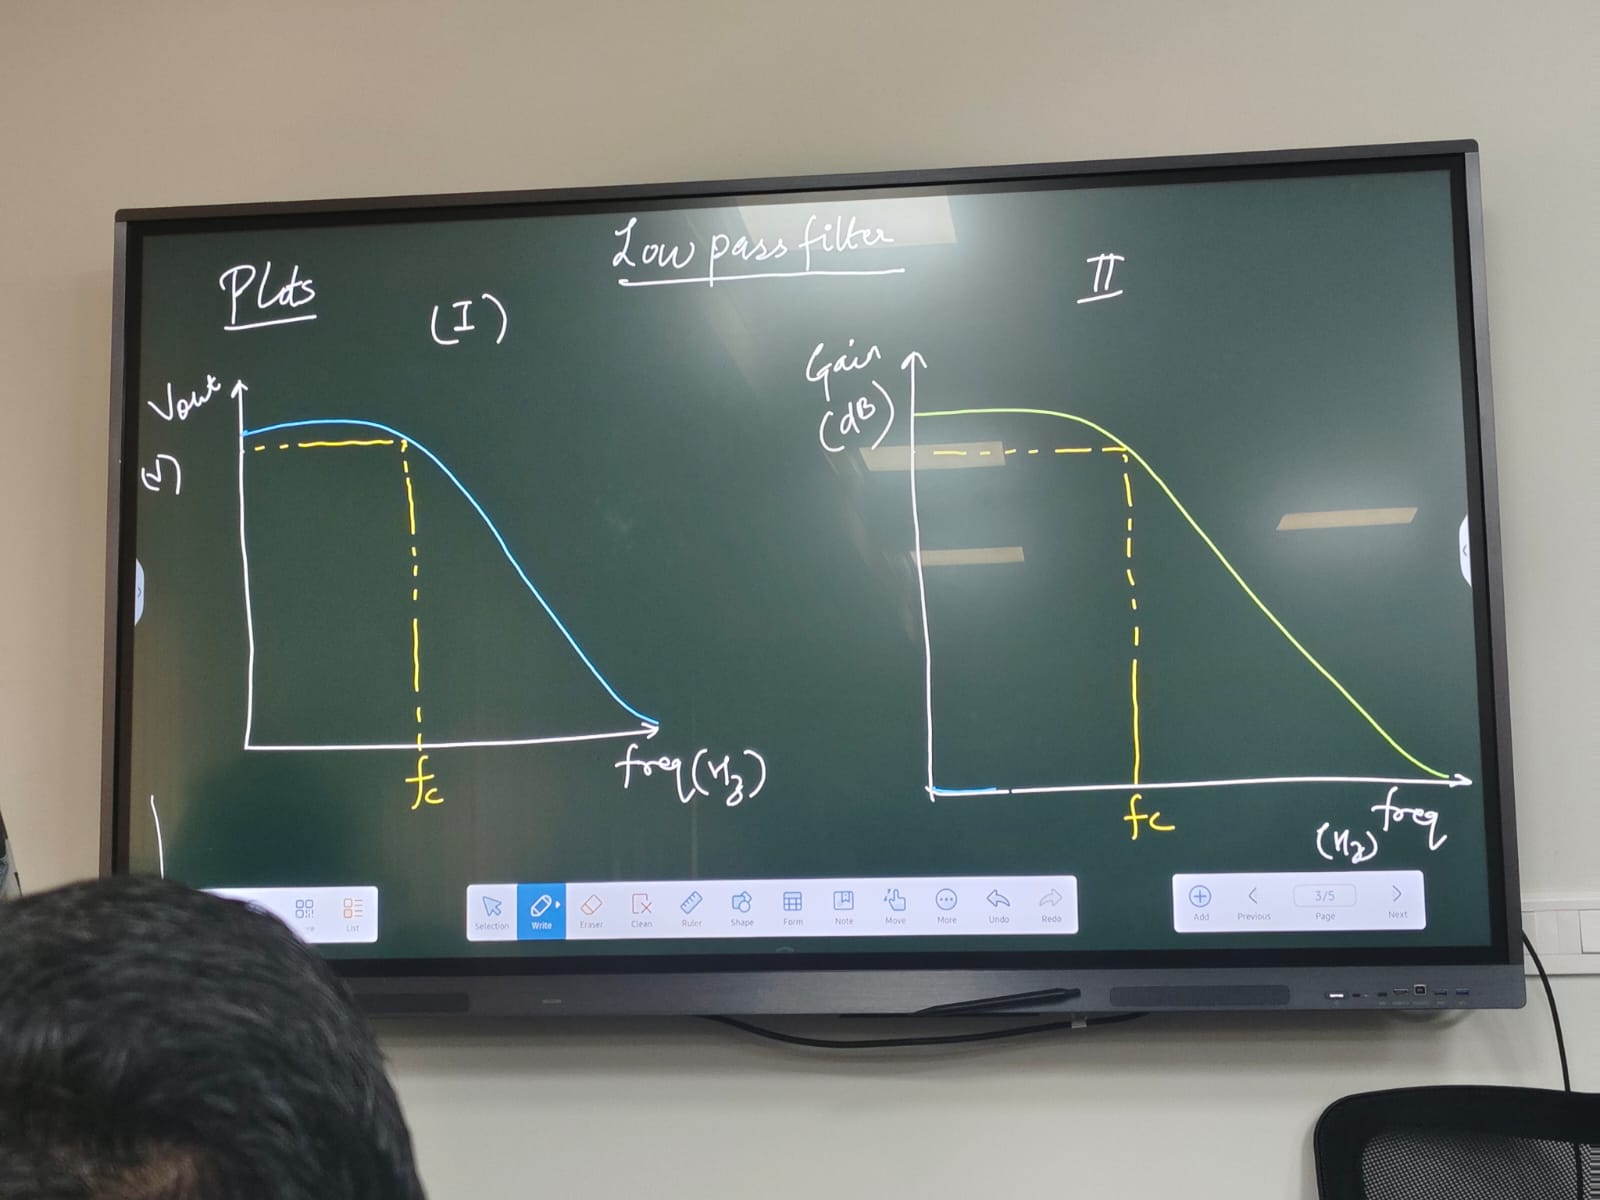 Low pass filter
Plots
(I)
II
Vout
(V)
fc
freq(Hz)
Gain
(dB)
fc
freq
(Hz)
List
Selection
Write
Eraser
Clean
Ruler
Shape
Form
Note
Move
More
Undo
Redo
Add
Previous
3/5
Page
Next